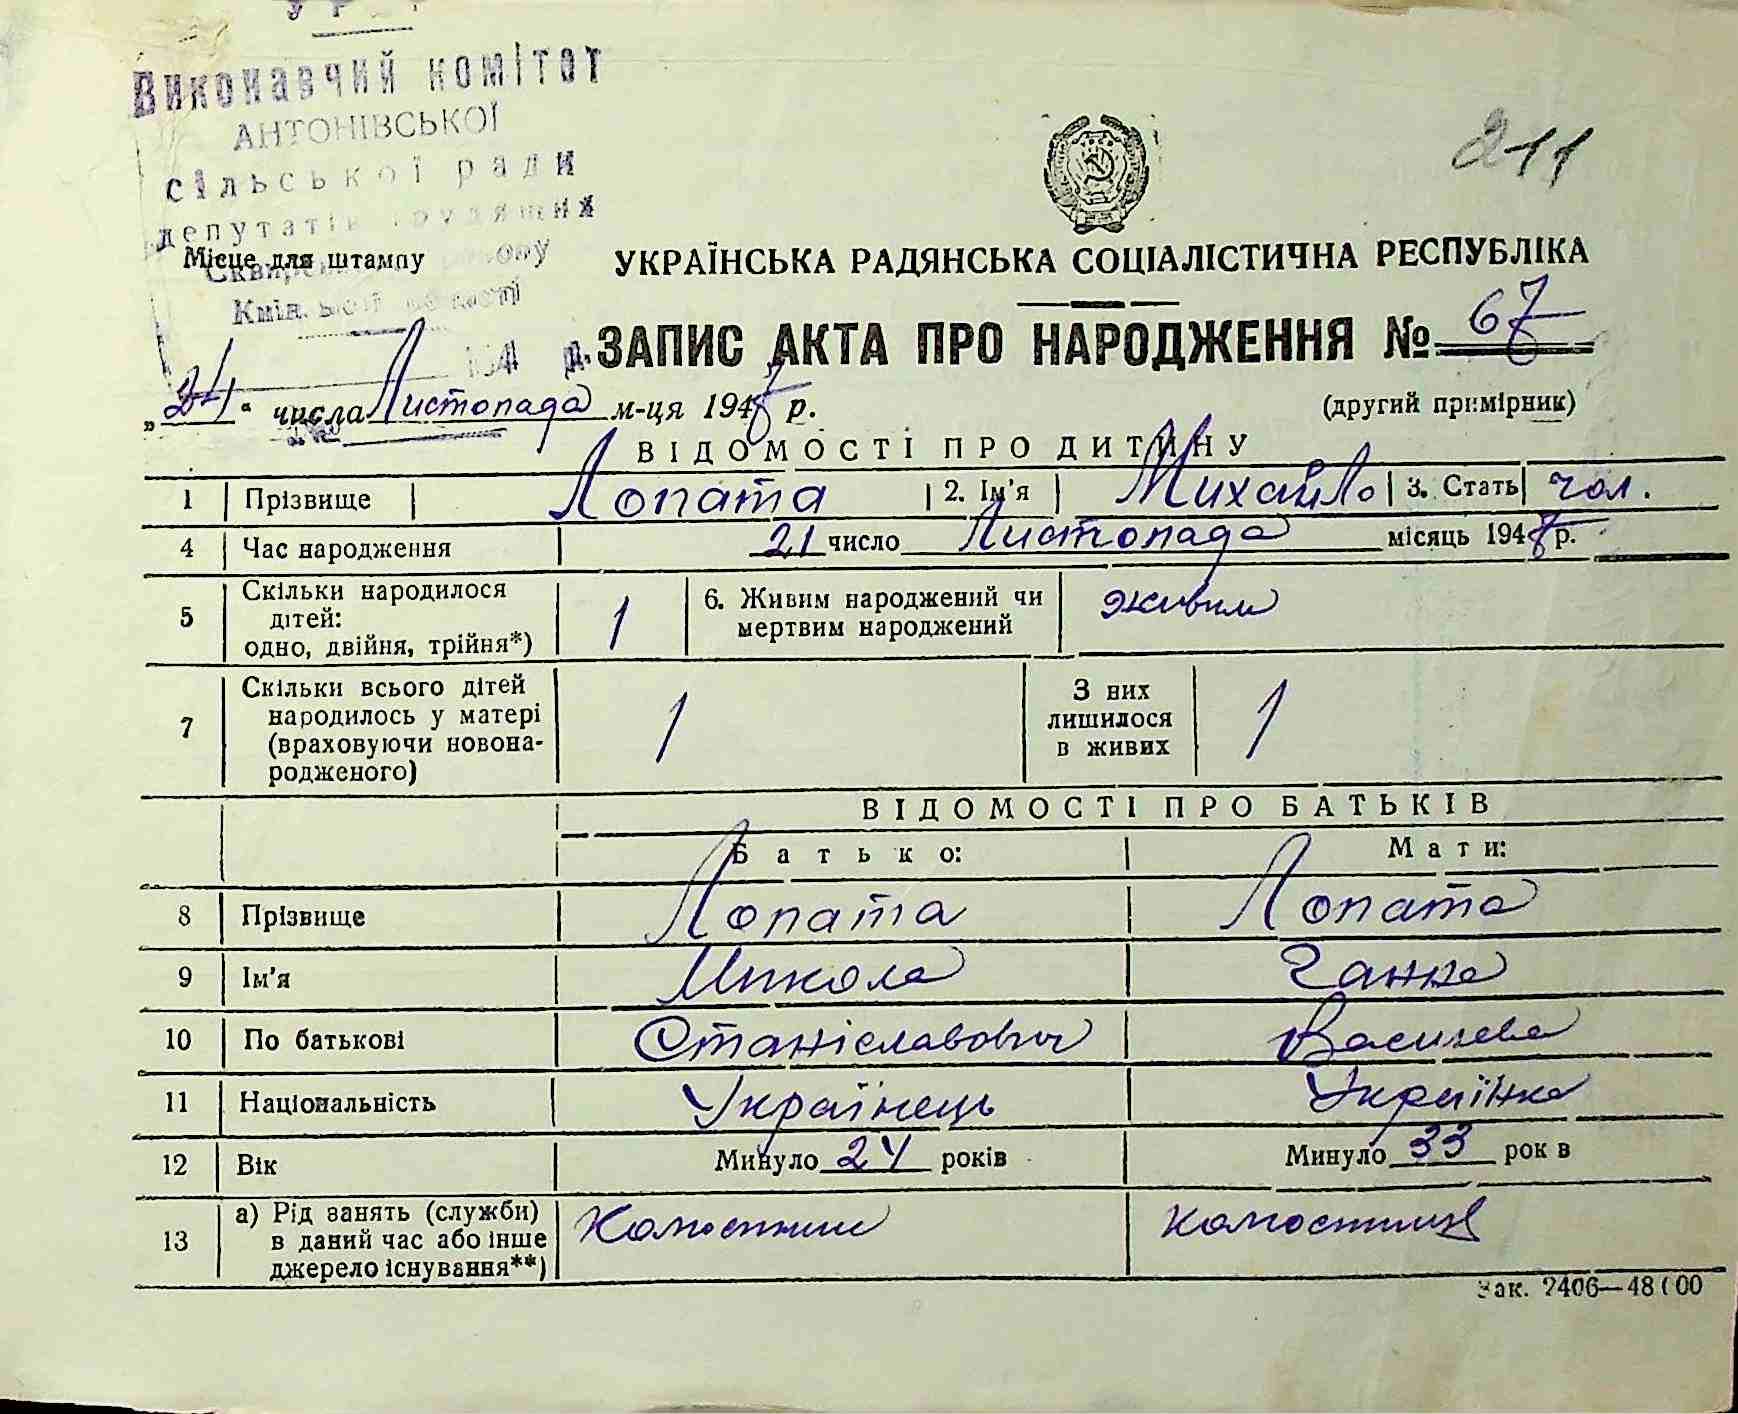 Виконавчий комітет
АНТОНІВСЬКОЇ
сільської ради
депутатів трудящих
Місце для штампу
211
УКРАЇНСЬКА РАДЯНСЬКА СОЦІАЛІСТИЧНА РЕСПУБЛІКА
ЗАПИС АКТА ПРО НАРОДЖЕННЯ № 67
„24“ числа Листопада м-ця 1947 р.
(другий примірник)
ВІДОМОСТІ ПРО ДИТИНУ
1 Прізвище Лопата 2. Ім'я Михайло 3. Стать чол.
4 Час народження 21 число Листопада місяць 1947 р.
5 Скільки народилося дітей: одно, двійня, трійня*) 1 6. Живим народжений чи мертвим народжений живим
7 Скільки всього дітей народилось у матері (враховуючи новона-родженого) 1 З них лишилося в живих 1
ВІДОМОСТІ ПРО БАТЬКІВ
Батько: Мати:
8 Прізвище Лопата Лопата
9 Ім'я Микола Ганна
10 По батькові Станіславович Василева
11 Національність Українець Українка
12 Вік Минуло 24 років Минуло 33 рок в
13 а) Рід занять (служби) в даний час або інше джерело існування**) Колгоспник колгоспниця
Зак. 2406—48000